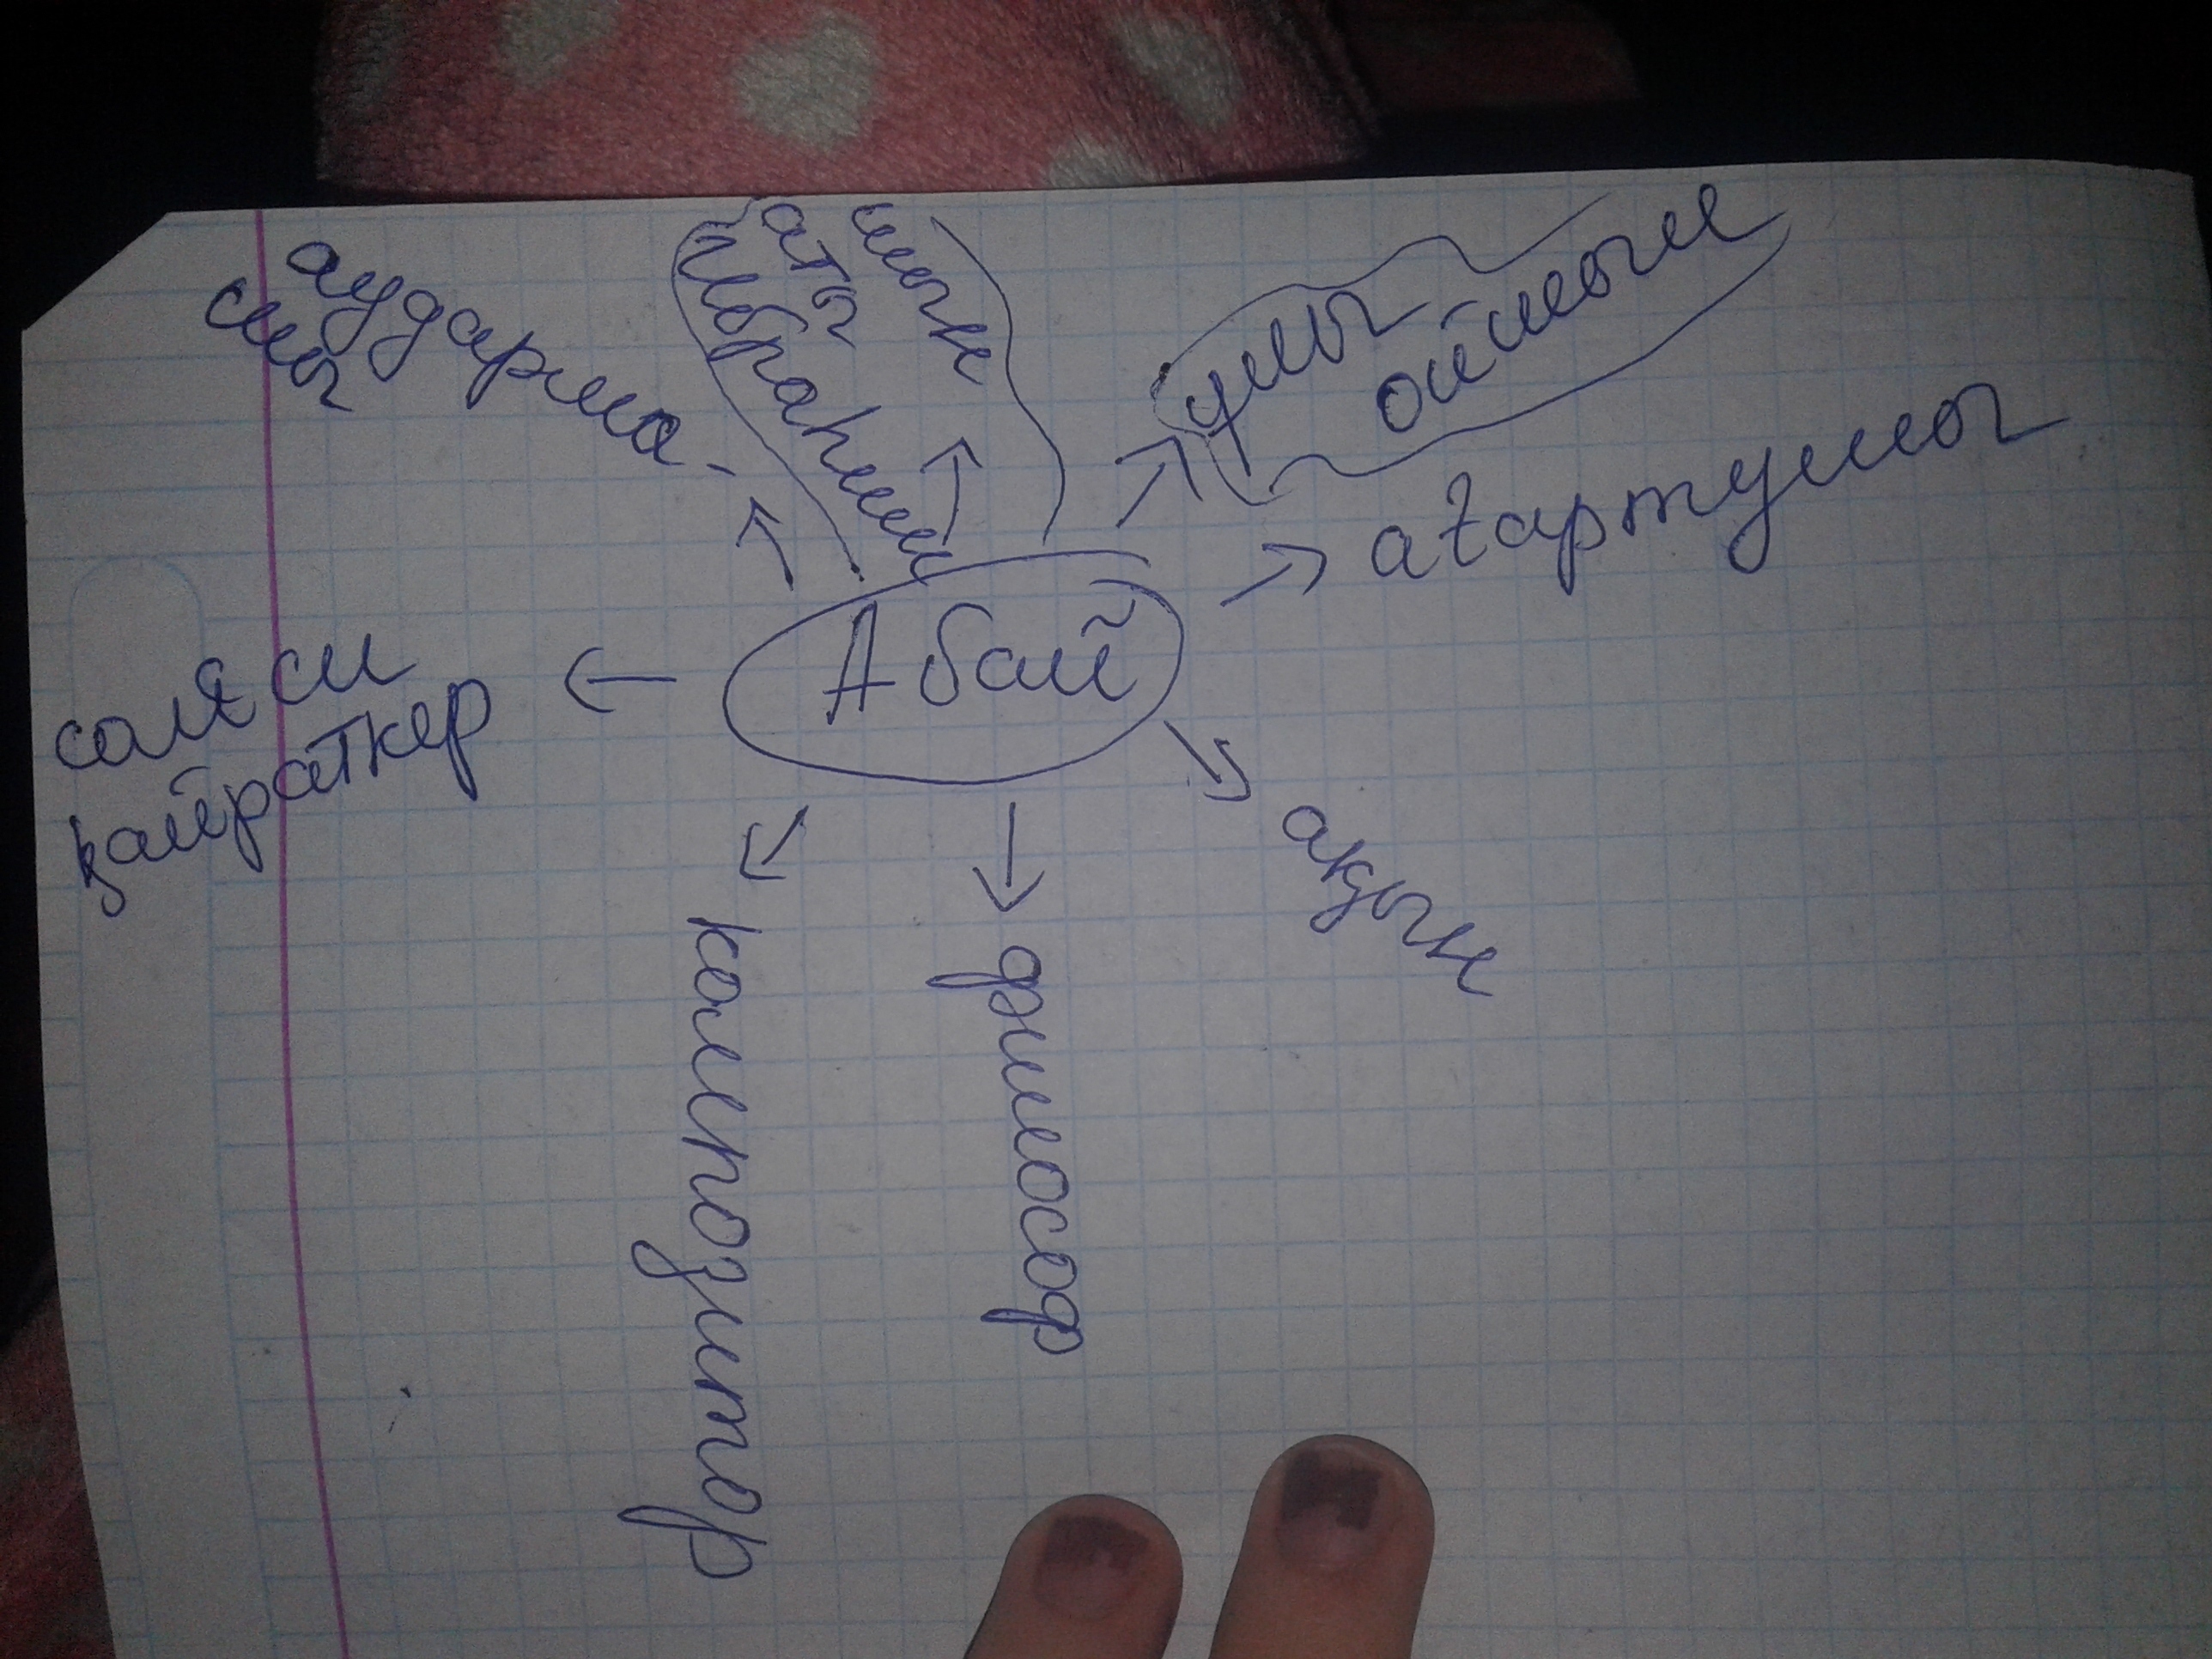 Абай
аударма-
шы
шын
аты
Ибраһим
ұлы
ойшыл
ағартушы
ақын
философ
композитор
саяси
қайраткер